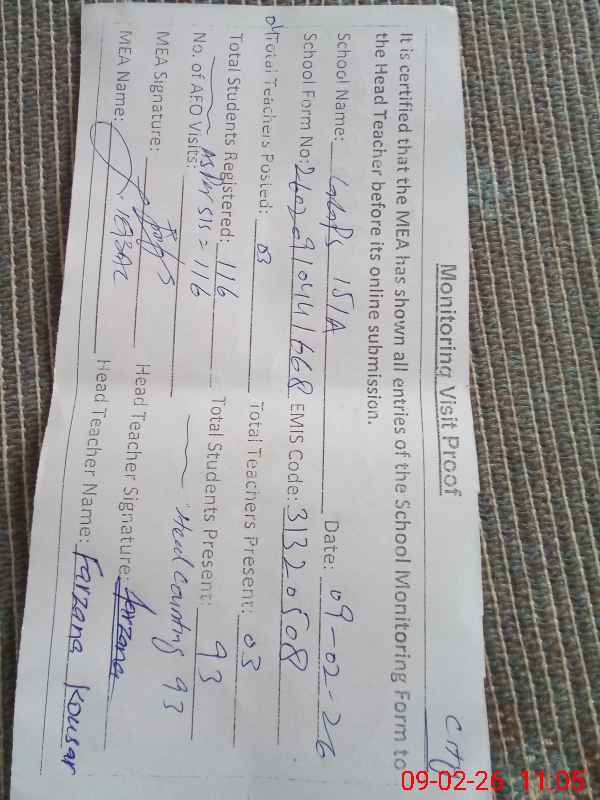 City
Monitoring Visit Proof
It is certified that the MEA has shown all entries of the School Monitoring Form to
the Head Teacher before its online submission.
School Name: 151A Date: 09-02-26
School Form No: 26020910441668 EMIS Code: 31320508
Total Teachers Posted: 03 Total Teachers Present: 03
Total Students Registered: 116 Total Students Present: 93
No. of AFO Visits: As per SIS = 116 Head Counting 93
MEA Signature: Head Teacher Signature: Farzana
MEA Name: Head Teacher Name: Farzana Kousar
09-02-26 11:05